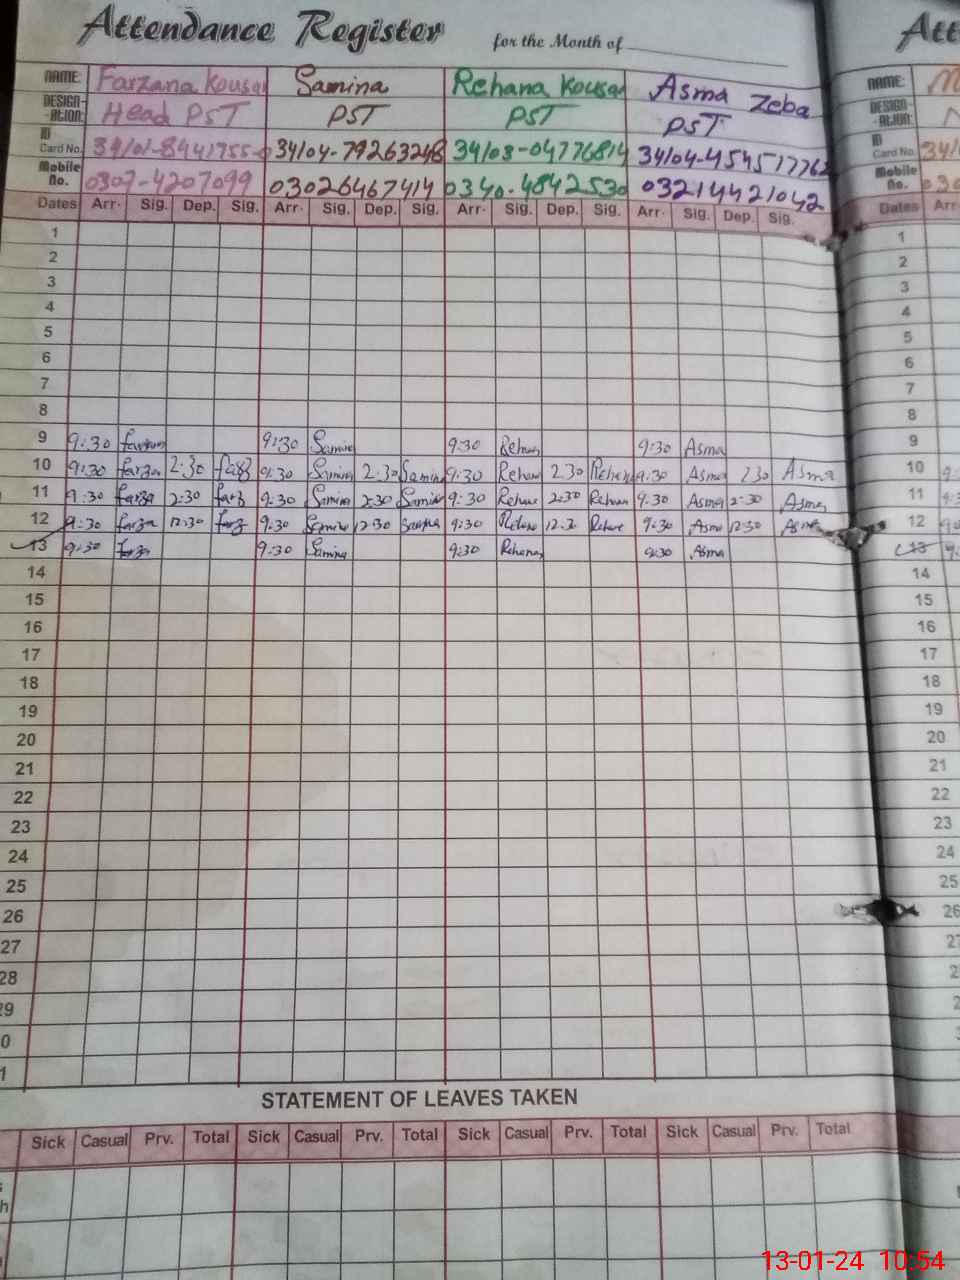 Attendance Register for the Month of
NAME: Farzana Kousar Samina Rehana Kousar Asma Zeba
DESIGN-ATION: Head PST PST PST PST
ID Card No. 34101-8441755-0 34104-79263248 34103-04776814 34104-454517762
Mobile No. 0307-4207099 03026467414 0340-4842530 03214421042
Dates Arr. Sig. Dep. Sig. Arr. Sig. Dep. Sig. Arr. Sig. Dep. Sig. Arr. Sig. Dep. Sig.
1
2
3
4
5
6
7
8
9 9:30 9:30 Samina 9:30 Rehan 9:30 Asma
10 9:30 farza 2:30 9:30 Samina 2:30 Samina 9:30 Rehan 2:30 Rehana 9:30 Asma 2:30 Asma
11 9:30 farza 2:30 farz 9:30 Samina 2:30 Samina 9:30 Rehana 2:30 Rehan 9:30 Asma 2:30 Asma
12 9:30 farza 12:30 farz 9:30 Samina 12:30 9:30 Rehana 12:30 9:30 Asma 12:30 Asma
13 9:30 farza 9:30 Samina 9:30 Rehana 9:30 Asma
14
15
16
17
18
19
20
21
22
23
24
25
26
27
28
29
0
1
STATEMENT OF LEAVES TAKEN
Sick Casual Prv. Total Sick Casual Prv. Total Sick Casual Prv. Total Sick Casual Prv. Total
Att
NAME:
DESIGN-ATION:
ID Card No. 341
Mobile No. 030
Dates Arr
1
2
3
4
5
6
7
8
9
10
11
12
13
14
15
16
17
18
19
20
21
22
23
24
25
26
13-01-24 10:54